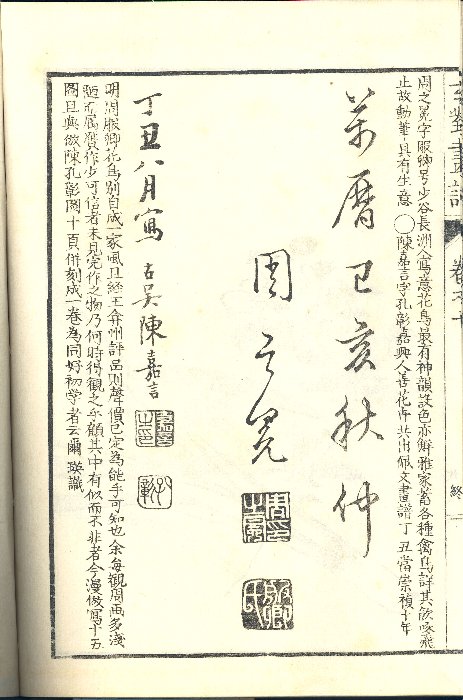 周之冕字服卿号少谷長洲人寫意花鳥最有神韻設色亦鮮雅家畜各種禽鳥詳其飲啄飛
止故動筆具有生意〇陳嘉言字孔彰嘉興人善花卉共出佩文書畫譜丁丑當崇禎十年
萬曆己亥秋仲
周之冕
周之冕印
服卿氏
丁丑八月寫 古吴陳嘉言
明周服卿花鳥別自成一家風且經王弇州評品則聲價已定為能手可知也余每觀周画多淺
陋而贋作少可信者未見完作之物乃何時得觀之乎顧其中有似而不非者今漫倣寫十五
圖且與倣陳孔彰圖十頁併刻成一卷為同好初學者云爾 瑛識
終